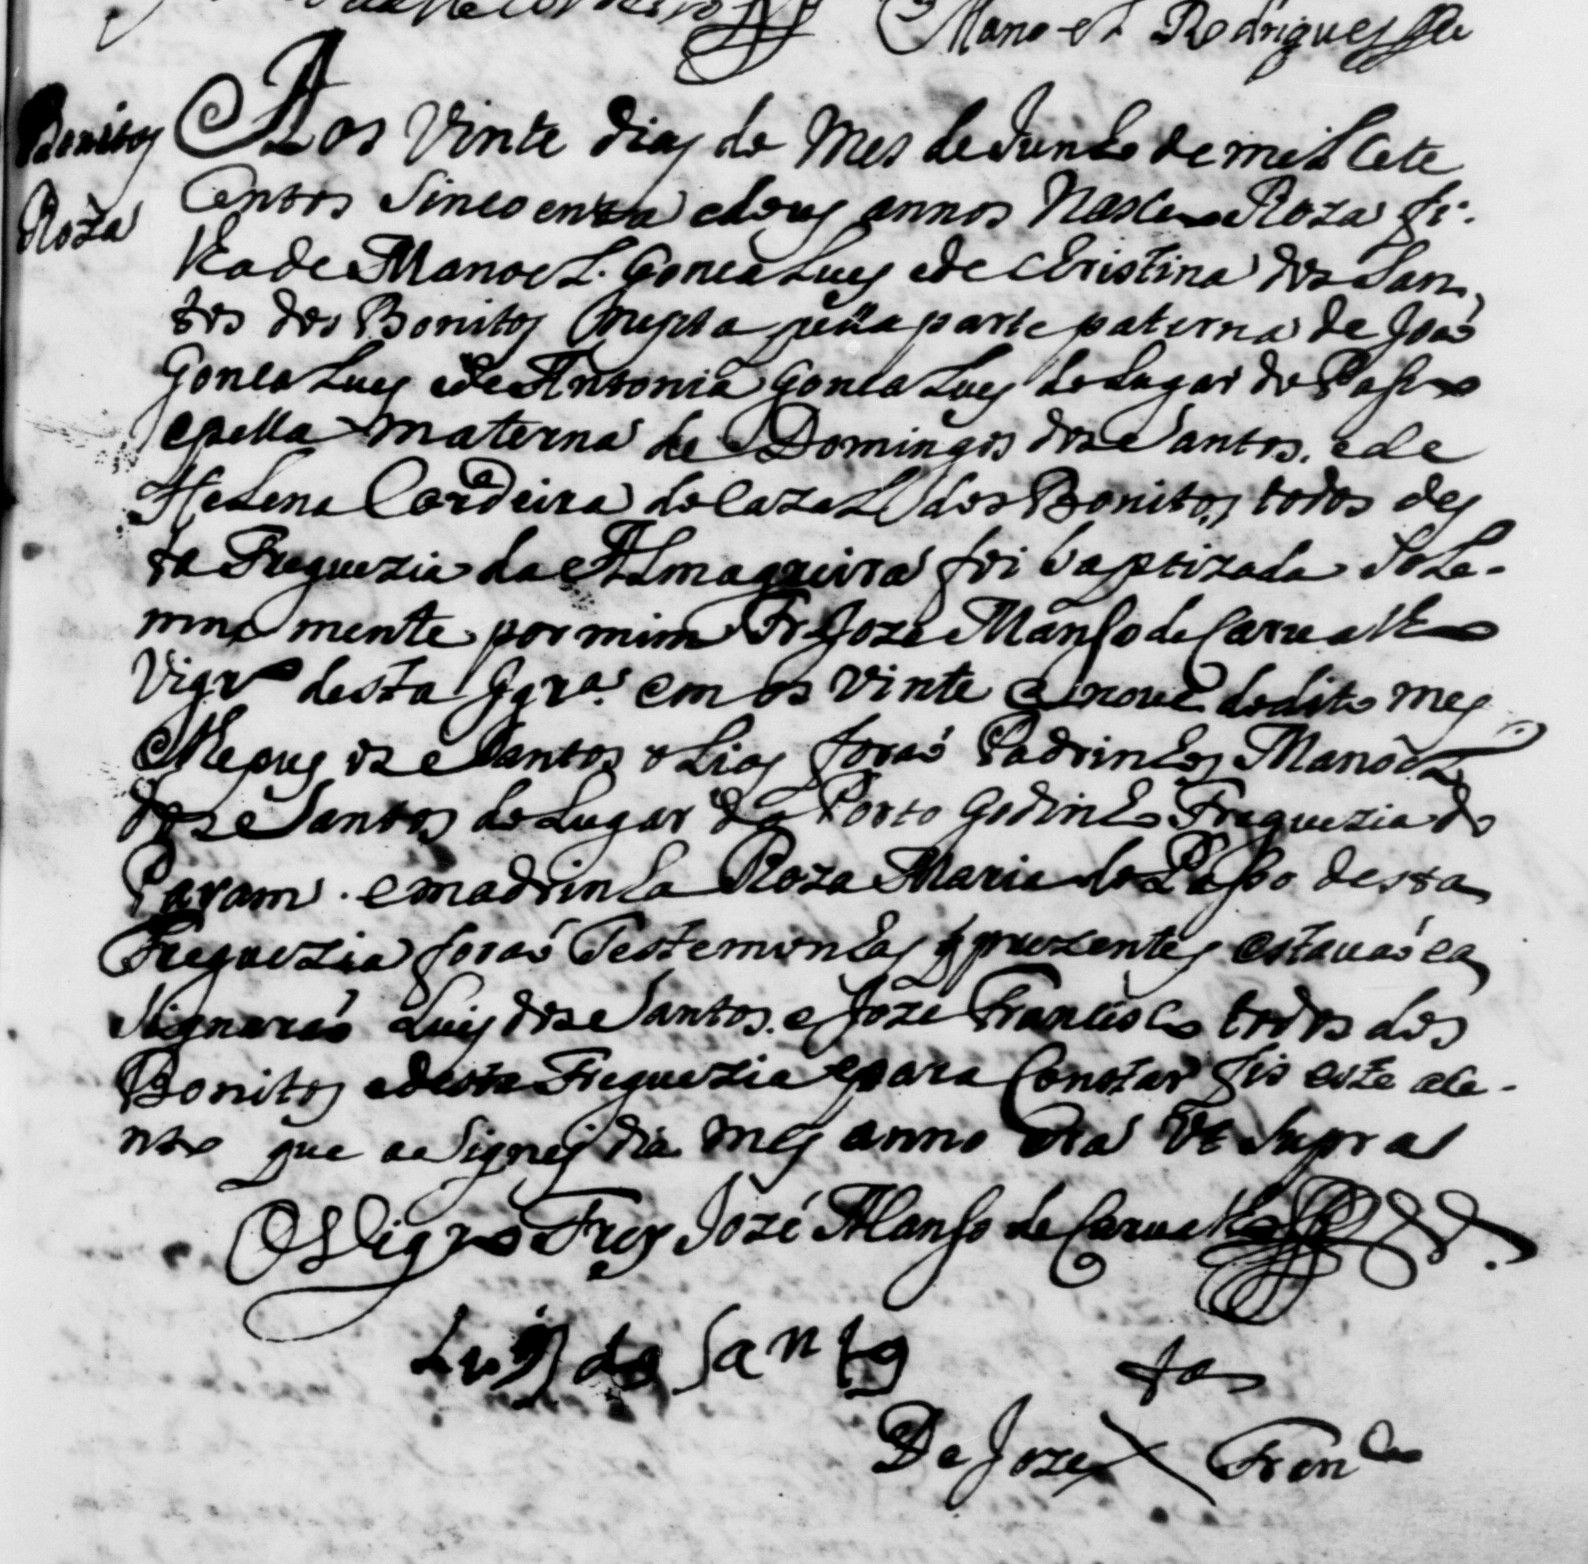 Mano-el Rodrigues
Bonitos
Roza
Aos Vinte dias do Mes de Junho de mil Cete
Centos Sincoenta e dous annos Nasceo Roza fi-
lha de Manoel Goncalues e de Christina dos San-
tos dos Bonitos Nepta pella parte paterna de Joaõ
Goncalues e de Antonia Goncalues do Lugar do Passo
e pella materna de Domingos dos Santos e de
Helena Cordeira do Cazal dos Bonitos todos des
ta Freguezia da Almagreira foi baptizada Sole-
mne mente por mim Fr Joze Manso de Carualho
Vigro desta Igra em os Vinte e noue do dito mes
e lhe pus os Santos olios foraõ Padrinhos Manoel
dos Santos do Lugar do Porto Godinho Freguezia do
e madrinha Roza Maria do Passo desta
Freguezia foraõ Testemunhas q prezentes estauaõ e a
Signaraõ Luis dos Santos e Joze Francisco todos dos
Bonitos e desta Freguezia e para Constar fis este ace-
nto que a Signej dia mes anno era Vt Supra
O Vigro Frey José Manso de Carualho
Luis do Santo
De Joze X Franco